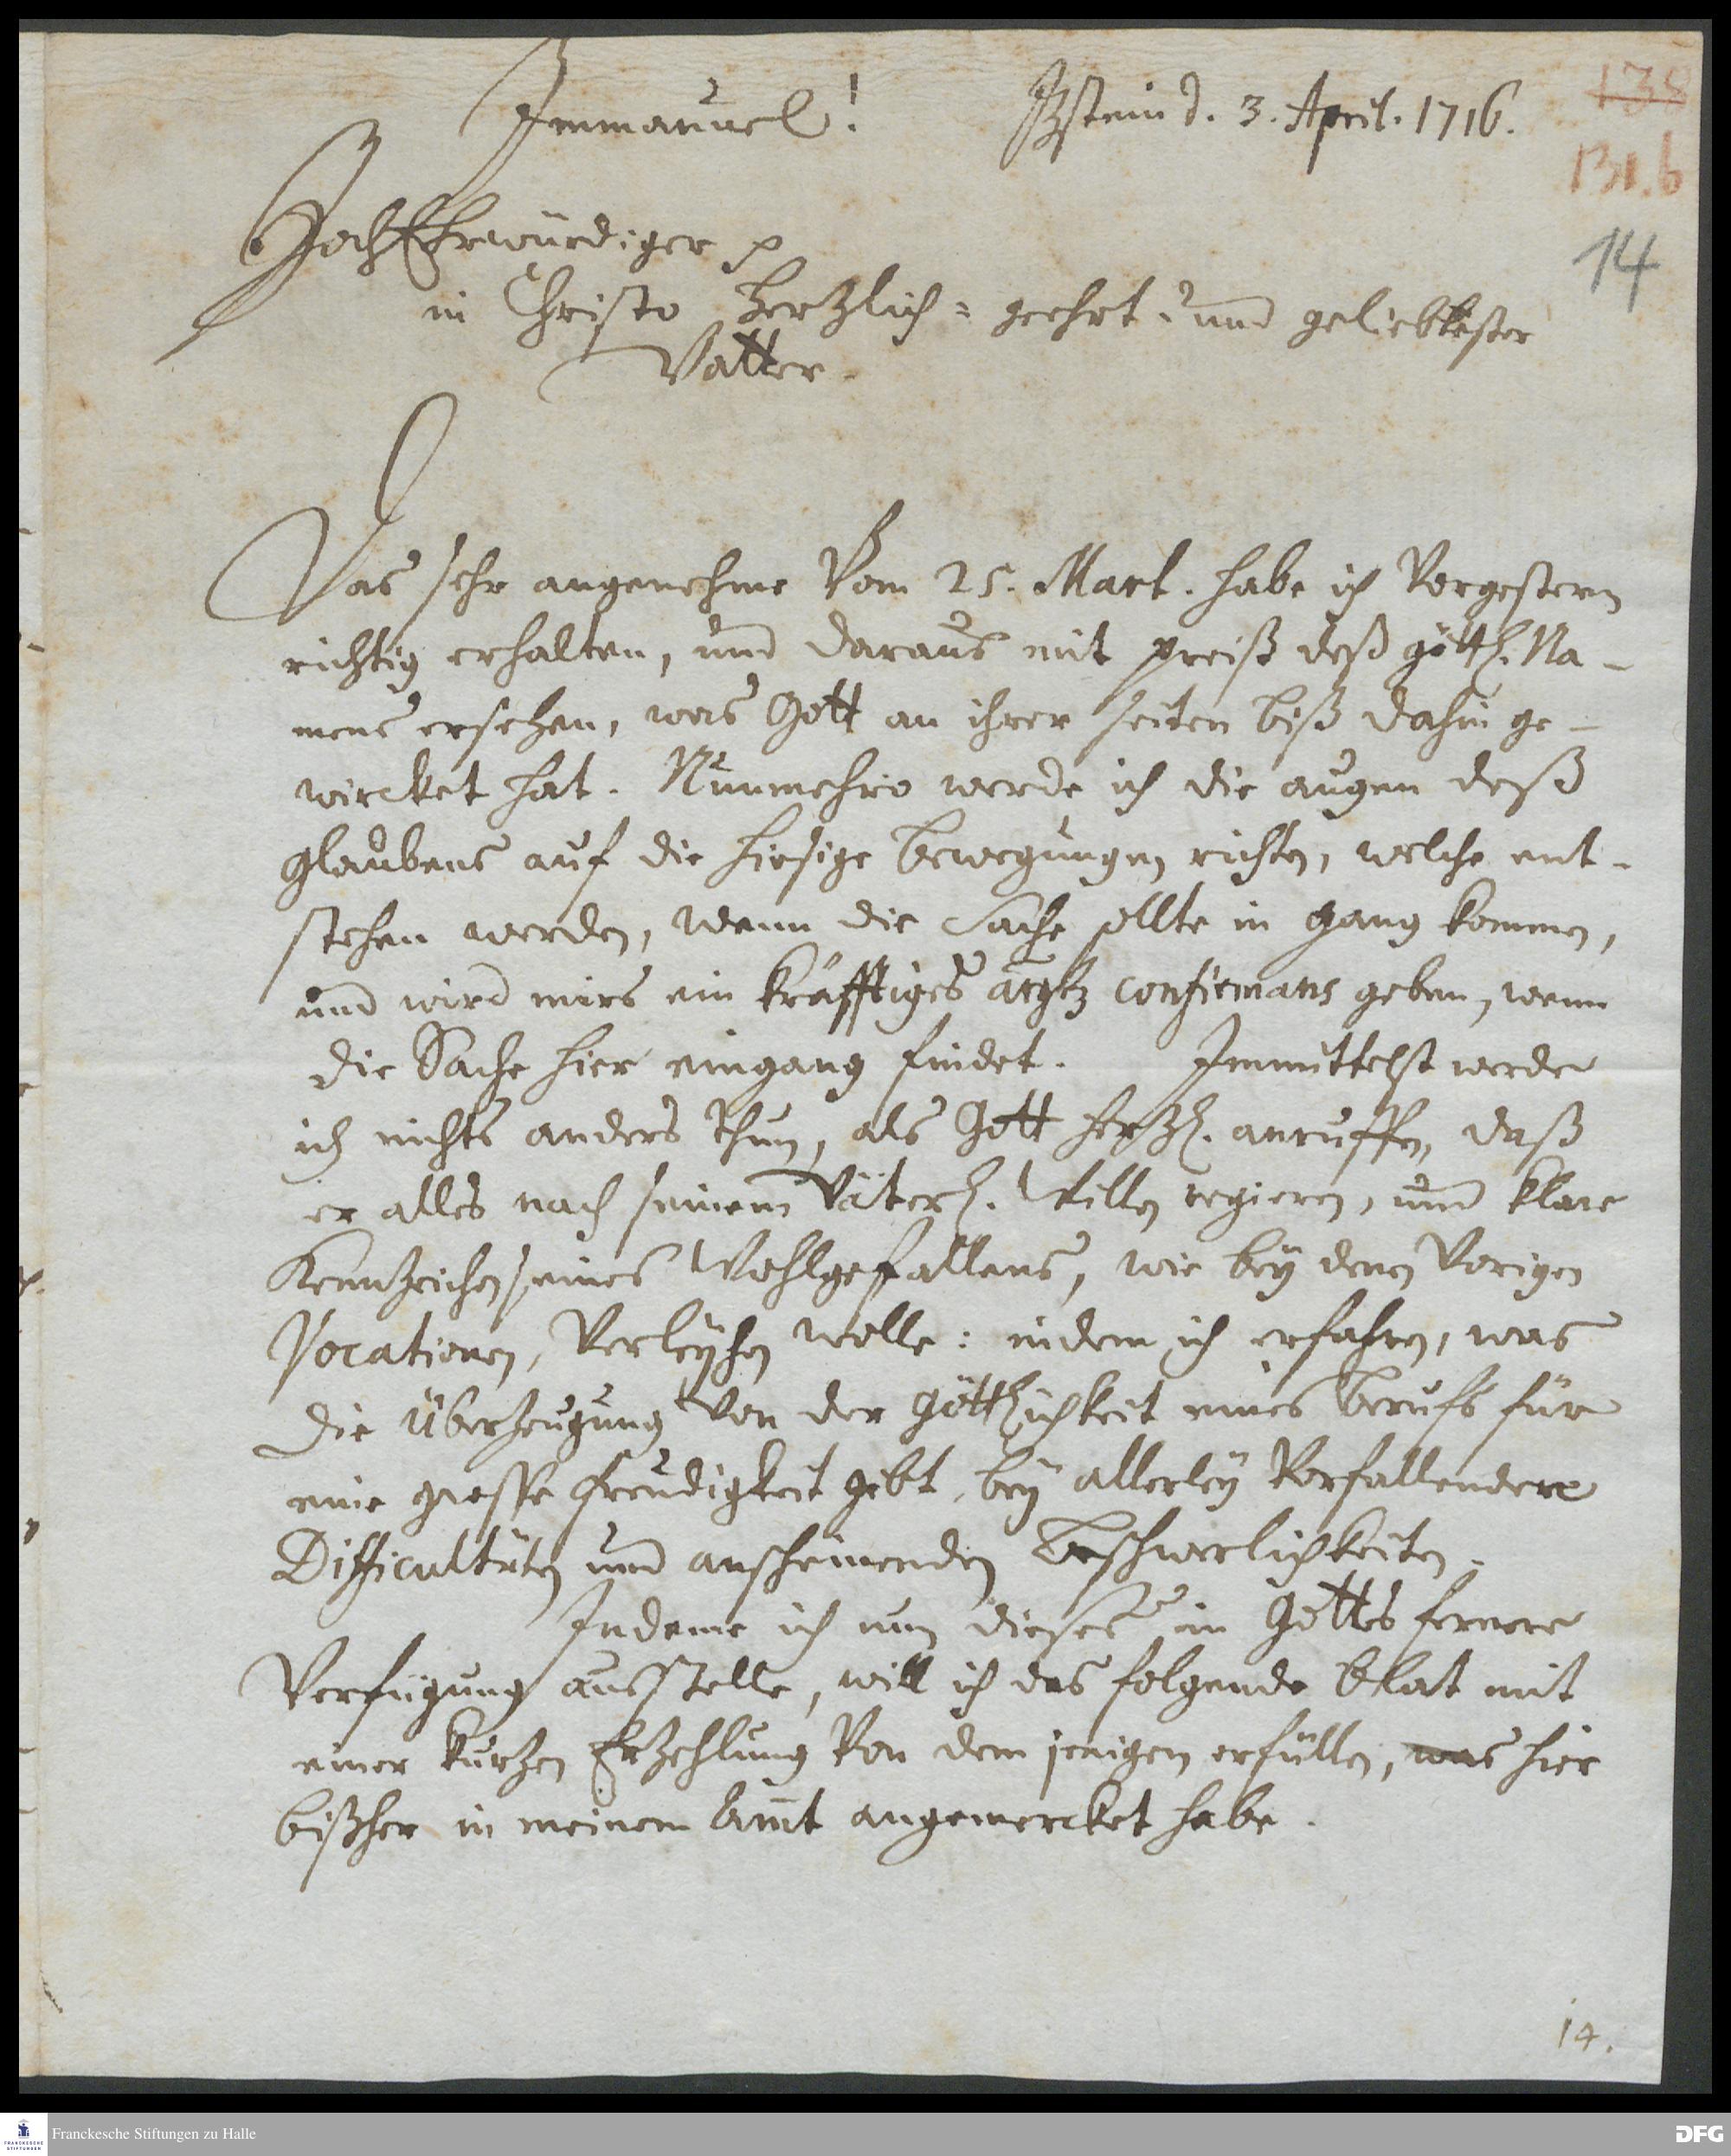 Immanuel! Itzstein d. 3. April. 1716.
138
131.b
14
HochEhrwürdiger p
in Christo Hertzlich-geehrt- und geliebtester
Vatter.
Das sehr angenehme Vom 25. Mart. habe ich Vorgestern
richtig erhalten, und daraus mit preiß deß göttl. Na-
mens ersehen, was Gott an ihrer seiten biß dahin ge-
wircket hat. Nunmehro werde ich die augen deß
glaubens auf die hiesige bewegungen richten, welche ent-
stehen werden, wenn die Sache sollte in gang kommen,
und wird mirs ein kräfftiges confirmans geben, wenn
die Sache hier eingang findet. Immittelst werde
ich nichts anders thun, als Gott hertzl. anruffen, daß
er alles nach seinem Väterl. Willen regieren, und klare
Kennzeichen seines Wohlgefallens, wie bey denen Vorigen
Vocationen, Verleyhen wolle: indem ich erfahren, was
die Uberzeugung Von der Göttlichkeit eines berufs für
eine grosse freudigkeit gibt, bey allerley Vorfallenden
Difficultäten und anscheinenden beschwerlichkeiten.
Indeme ich nun dieses in Gottes fernere
Verfügung ausstelle, will ich das folgende blat mit
einer kurtzen Erzehlung Von dem jenigen erfüllen, was hier
bißher in meinem Amt angemercket habe.
14.
Franckesche Stiftungen zu Halle
FRANCKESCHE STIFTUNGEN
DFG